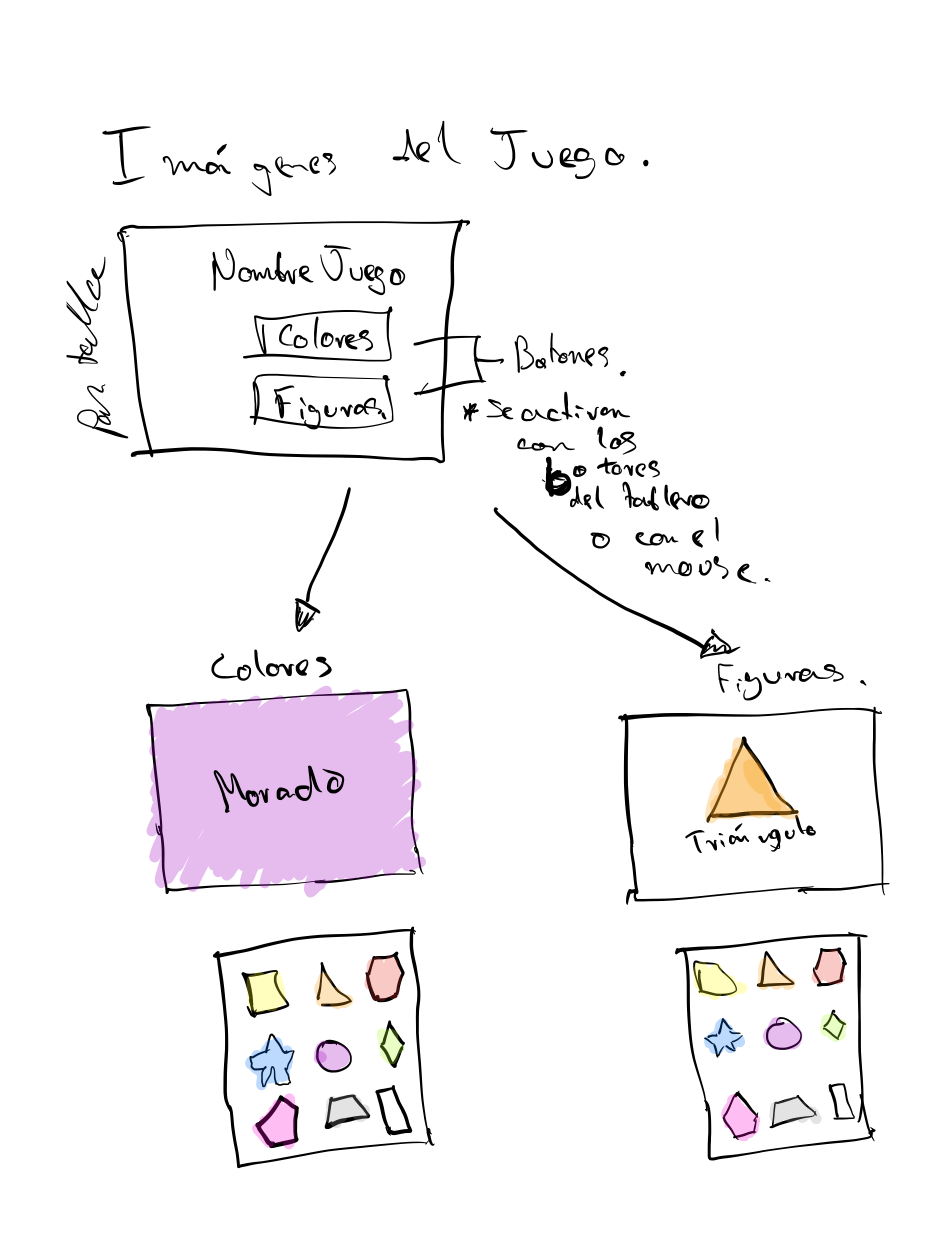 Imágenes del Juego.
Pantalla
Nombre Juego
Colores
Figuras
Botones.
* Se activan
con los
botones
del tablero
o con el
mouse.
Colores
Figuras.
Morado
Triángulo